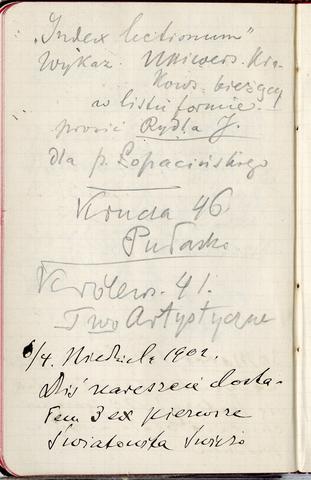 "Index lectionum"
Wykaz. Uniwers. Kra-
kows. bieżący
w listu formie.
prosić Rydla J.
dla p. Łopacińskiego
Krucza 46
Królews. 41.
Two Artystyczne
6/4. Niedziela 1902.
Dziś nareszcie dosta-
łem 3 ex pierwsze
Światowita świeżo